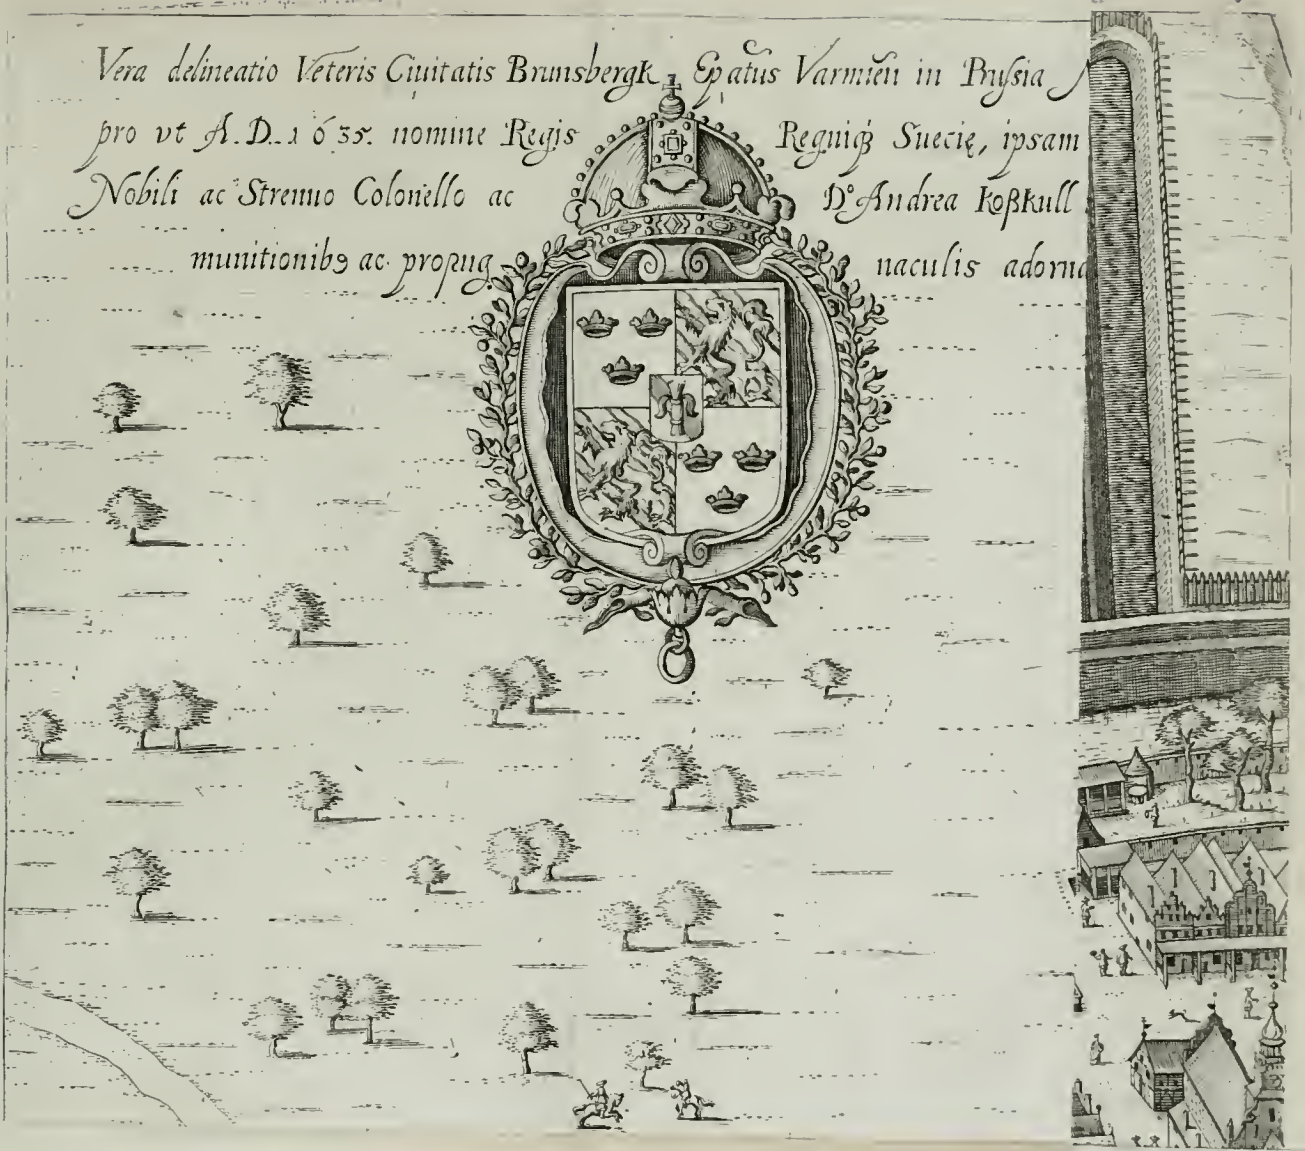 Vera delineatio Veteris Ciuitatis Brunsbergk, Epatus Varmien in Prußia
pro vt A.D. 1635. nomine Regis Regniqꝫ Suecię, ipsam
Nobili ac Strenuo Colonello ac Dº Andrea Koßkull
munitionibꝰ ac propug naculis adorna